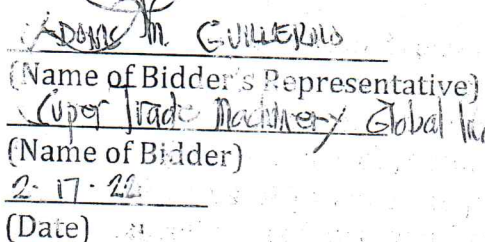 Adonis M. GUILLERMO
(Name of Bidder's Representative)
Super Trade Machinery Global Inc
(Name of Bidder)
2-17-22
(Date)